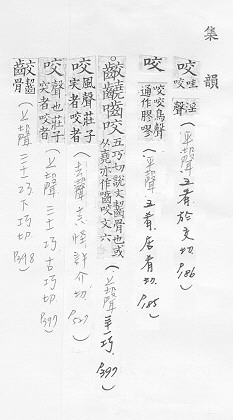 集韻
咬 哇咬淫聲 (平聲 五肴 於交切. P.186)
咬 咬咬鳥聲通作膠嘐 (平聲 五肴 居肴切. P.185)
齩 嚙咬 五巧切說文齧骨也或从堯亦作嚙咬文六 (上聲 三十一巧. P.397)
咬 風聲莊子宎者咬者 (去聲 怪 許介切. P.527)
咬 聲也莊子宎者咬者 (上聲 三十一巧 古巧切. P.397)
齩 齧骨 (上聲 三十一巧 下巧切. P.398)